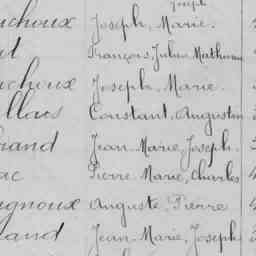 Joseph
uchoux Joseph, Marie.
François, Jules Mathurin
uchoux Joseph, Marie.
Constant, Augustin
rand Jean-Marie, Joseph.
ac Pierre Marie, Charles
gnoux Auguste, Pierre
and Jean-Marie, Joseph